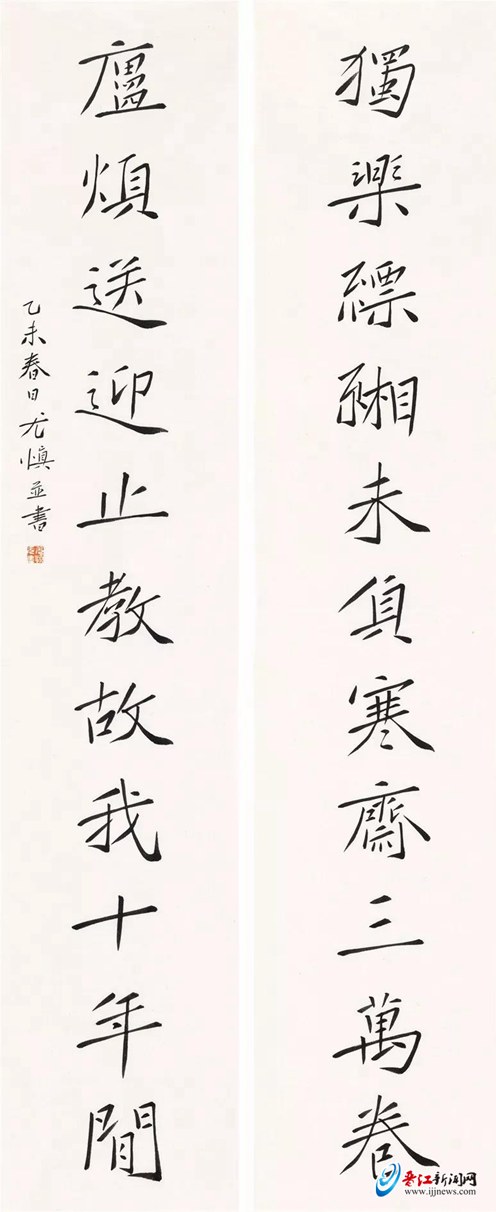 獨樂縹緗未負寒齋三萬卷
廬煩送迎止教故我十年閒
乙未春日尤慎並書
晋江新闻网
www.ijjnews.com